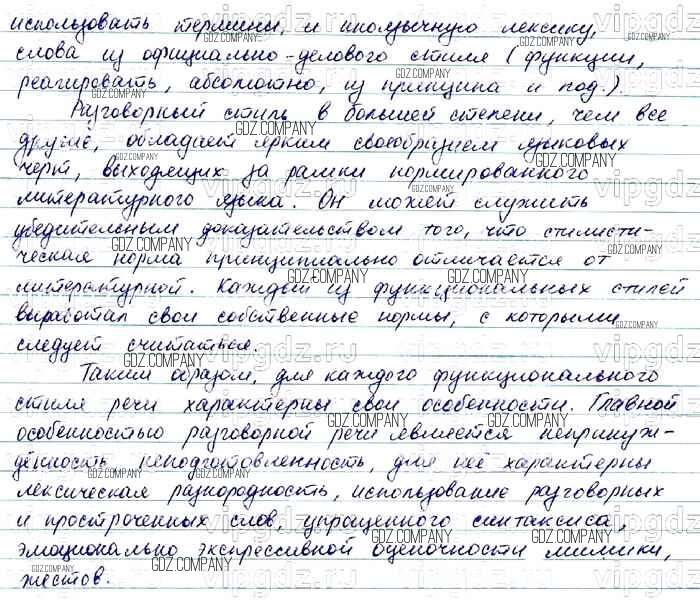 использовать термины, и иноязычную лексику,
слова из официально-делового стиля (функции,
реагировать, абсолютно, из принципа и под.).
Разговорный стиль в большей степени, чем все
другие, обладает ярким своеобразием языковых
черт, выходящих за рамки нормированного
литературного языка. Он может служить
убедительным доказательством того, что стилисти-
ческая норма принципиально отличается от
литературной. Каждый из функциональных стилей
выработал свои собственные нормы, с которыми
следует считаться.
Таким образом, для каждого функционального
стиля речи характерны свои особенности. Главной
особенностью разговорной речи является непринуж-
дённость, неподготовленность, для неё характерны
лексическая разнородность, использование разговорных
и просторечных слов, упрощенного синтаксиса,
эмоционально экспрессивной оценочности мимики,
жестов.